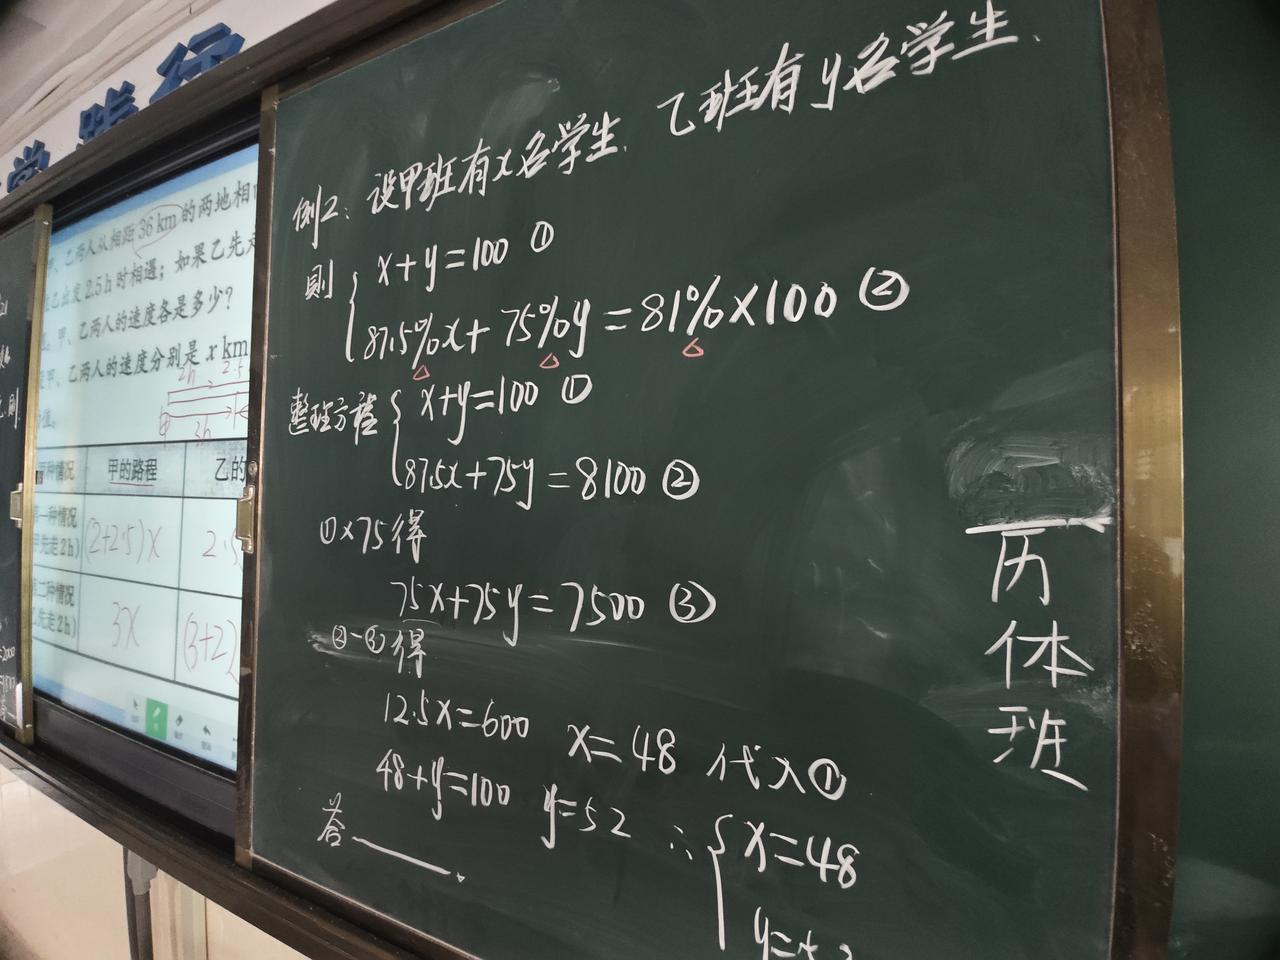 践行
甲、乙两人从相距36 km的两地相
出发2.5 h时相遇；如果乙先走
甲、乙两人的速度各是多少？
甲、乙两人的速度分别是x km
2h 2.5
3h
种情况 甲的路程 乙的
第一种情况
甲先走2h) (2+2.5)x 2.5
第二种情况
乙先走2h) 3x (3+2)
例2: 设甲班有x名学生, 乙班有y名学生,
则 { x+y=100 ①
87.5%x+75%y=81%×100 ②
整理方程 { x+y=100 ①
87.5x+75y=8100 ②
①×75得
75x+75y=7500 ③
②-③得
12.5x=600 x=48 代入①
48+y=100 y=52 ∴ { x=48
答——.
历
体
班